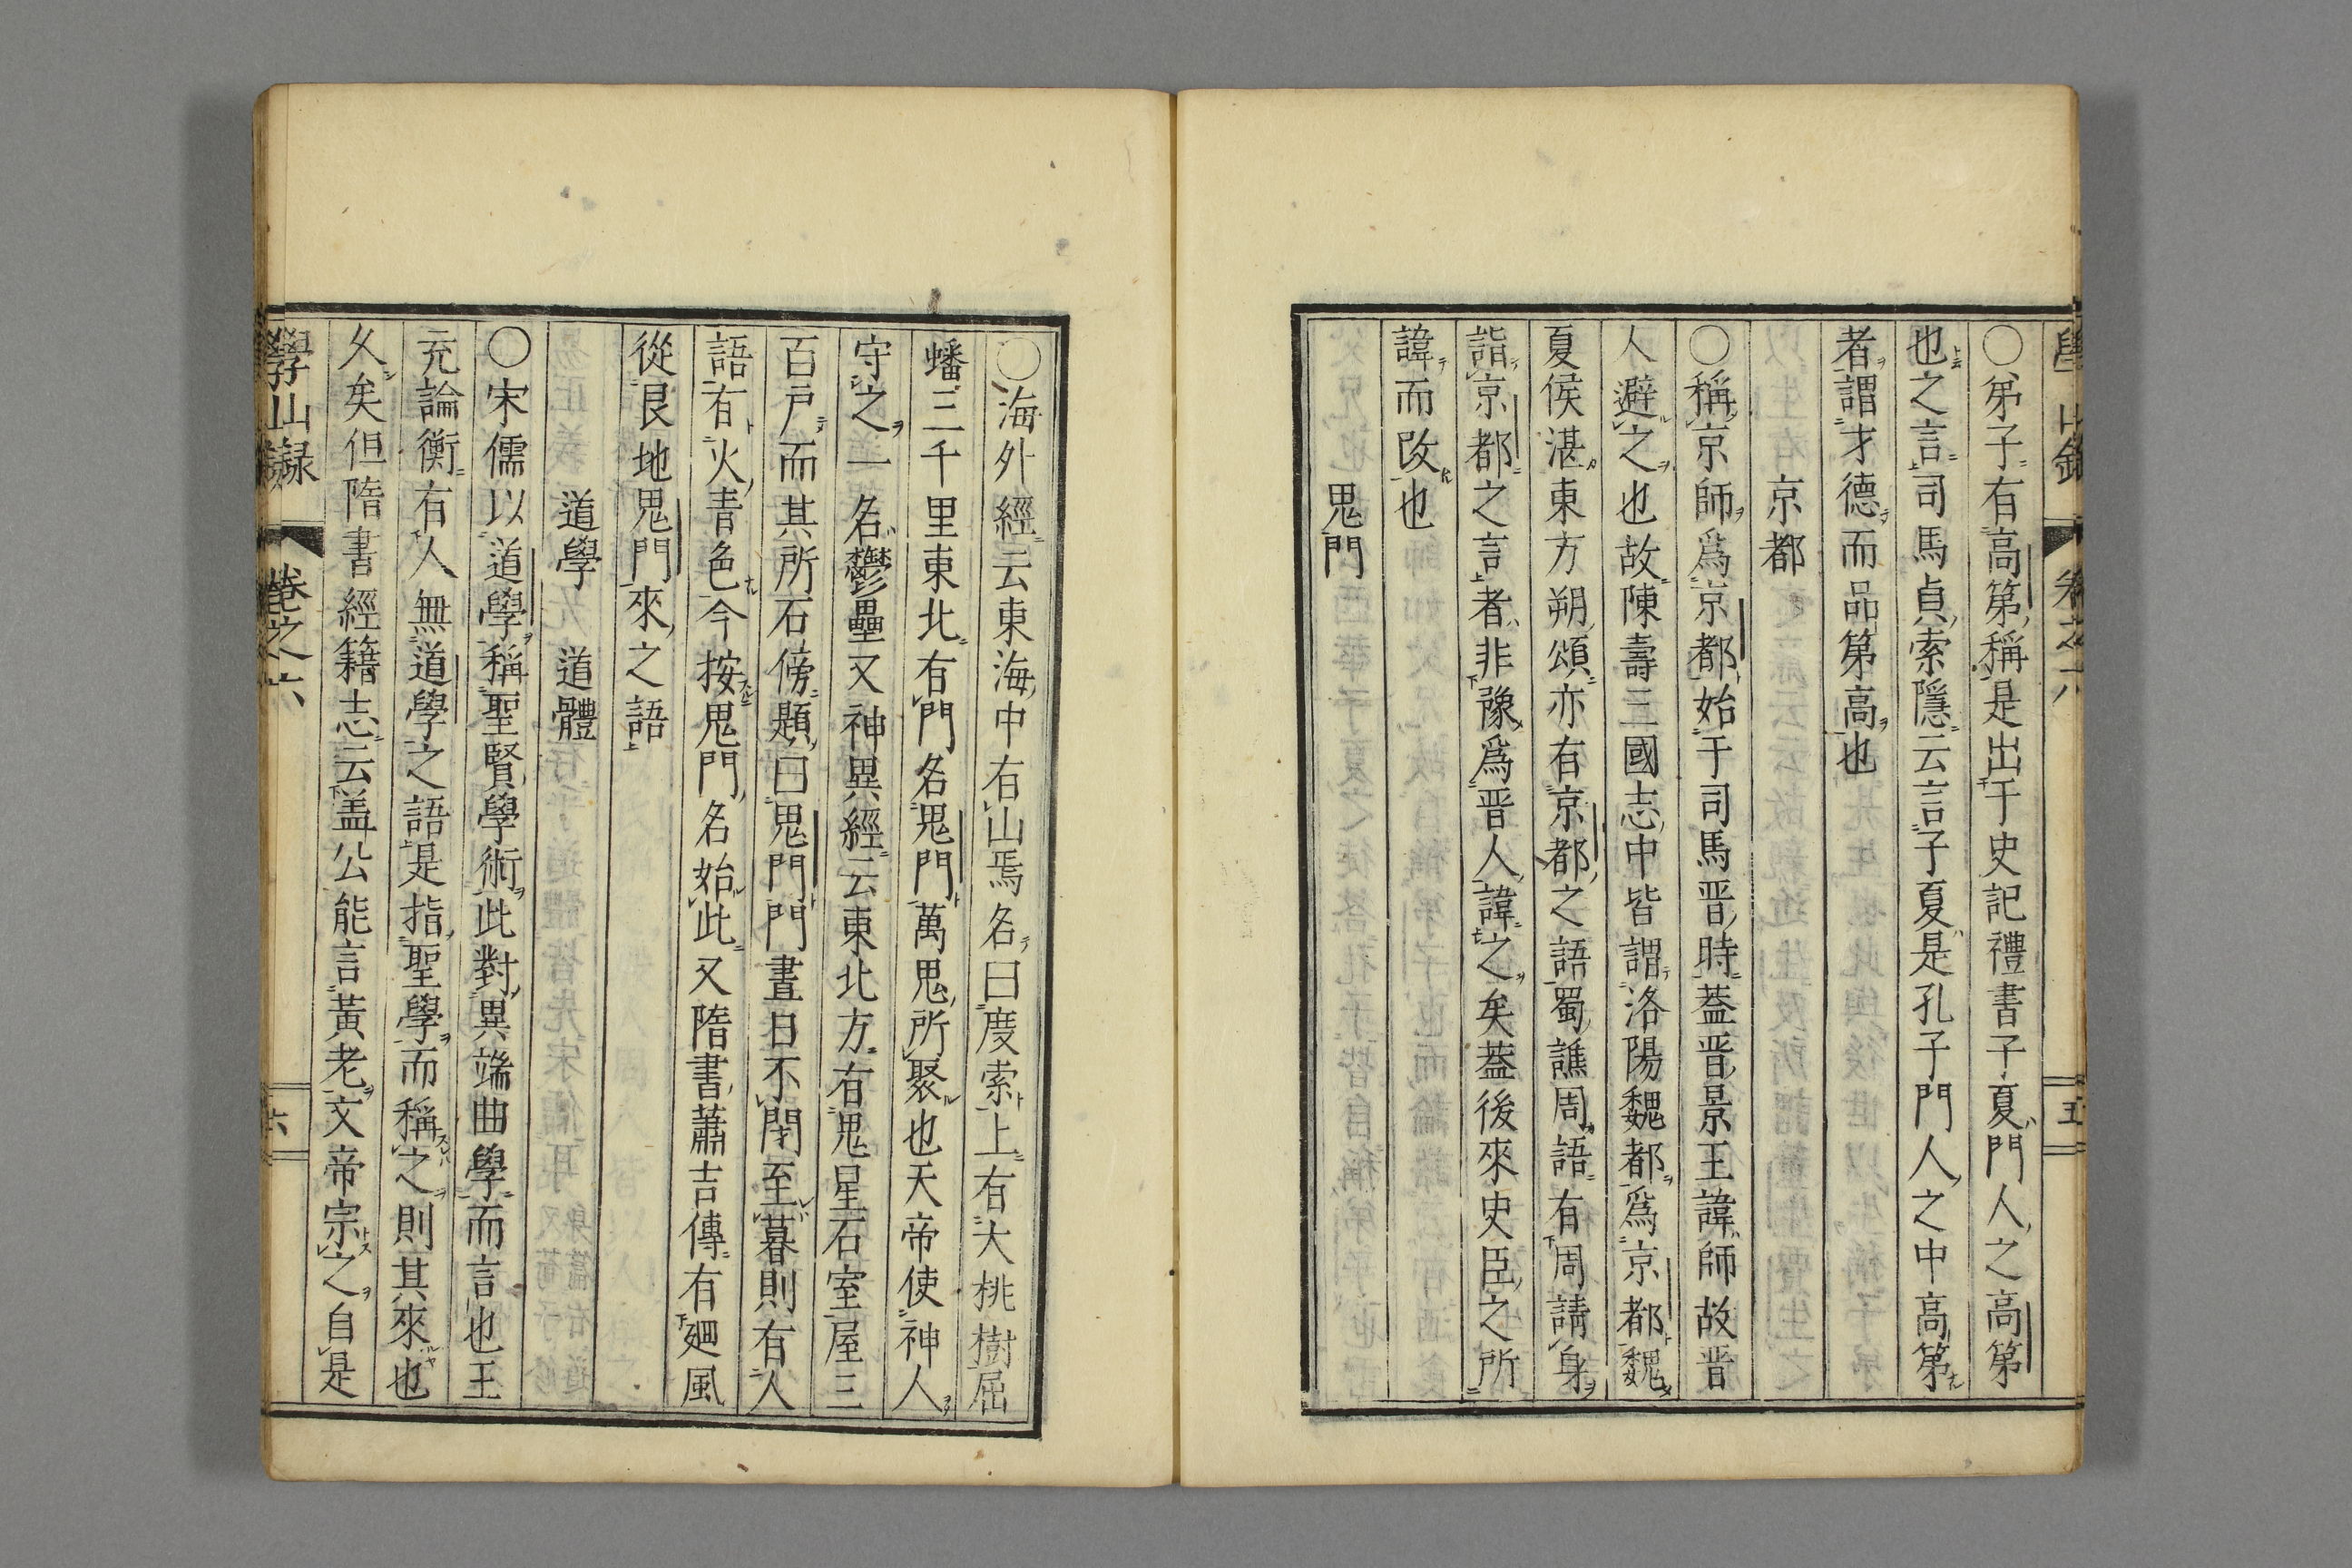 學山錄 卷之六 五
〇弟子有高第稱是出于史記禮書子夏門人之高第
也之言司馬貞索隱云言子夏是孔子門人之中高第
者謂才德而品第高也
京都
〇稱京師爲京都始于司馬晋時蓋晋景王諱師故晋
人避之也故陳壽三國志中皆謂洛陽魏都爲京都魏
夏侯湛東方朔頌亦有京都之語蜀譙周語有周請身
詣京都之言者非豫爲晋人諱之矣蓋後來史臣之所
諱而改也
鬼門
〇海外經云東海中有山焉名曰度索上有大桃樹屈
蟠三千里東北有門名鬼門萬鬼所聚也天帝使神人
守之一名鬱壘又神異經云東北方有鬼星石室屋三
百戶而其所石傍題曰鬼門門晝日不閉至暮則有人
語有火青色今按鬼門名始此又隋書蕭吉傳有廻風
從艮地鬼門來之語
道學 道體
〇宋儒以道學稱聖賢學術此對異端曲學而言也王
充論衡有人無道學之語是指聖學而稱之則其來也
久矣但隋書經籍志云盖公能言黃老文帝宗之自是
學山録 卷之六 六